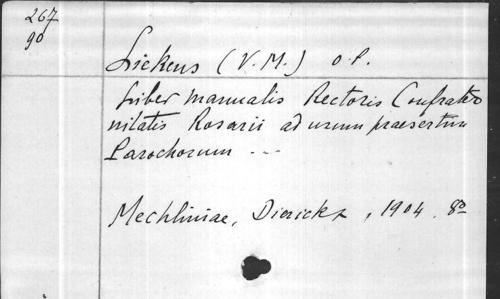 267
90
Lickens (V. M.) o.p.
Liber manualis Rectoris Confrater
nitatis Rosarii ad usum praesertim
Parochorum ---
Mechliniae, Dierickx, 1904. 8º